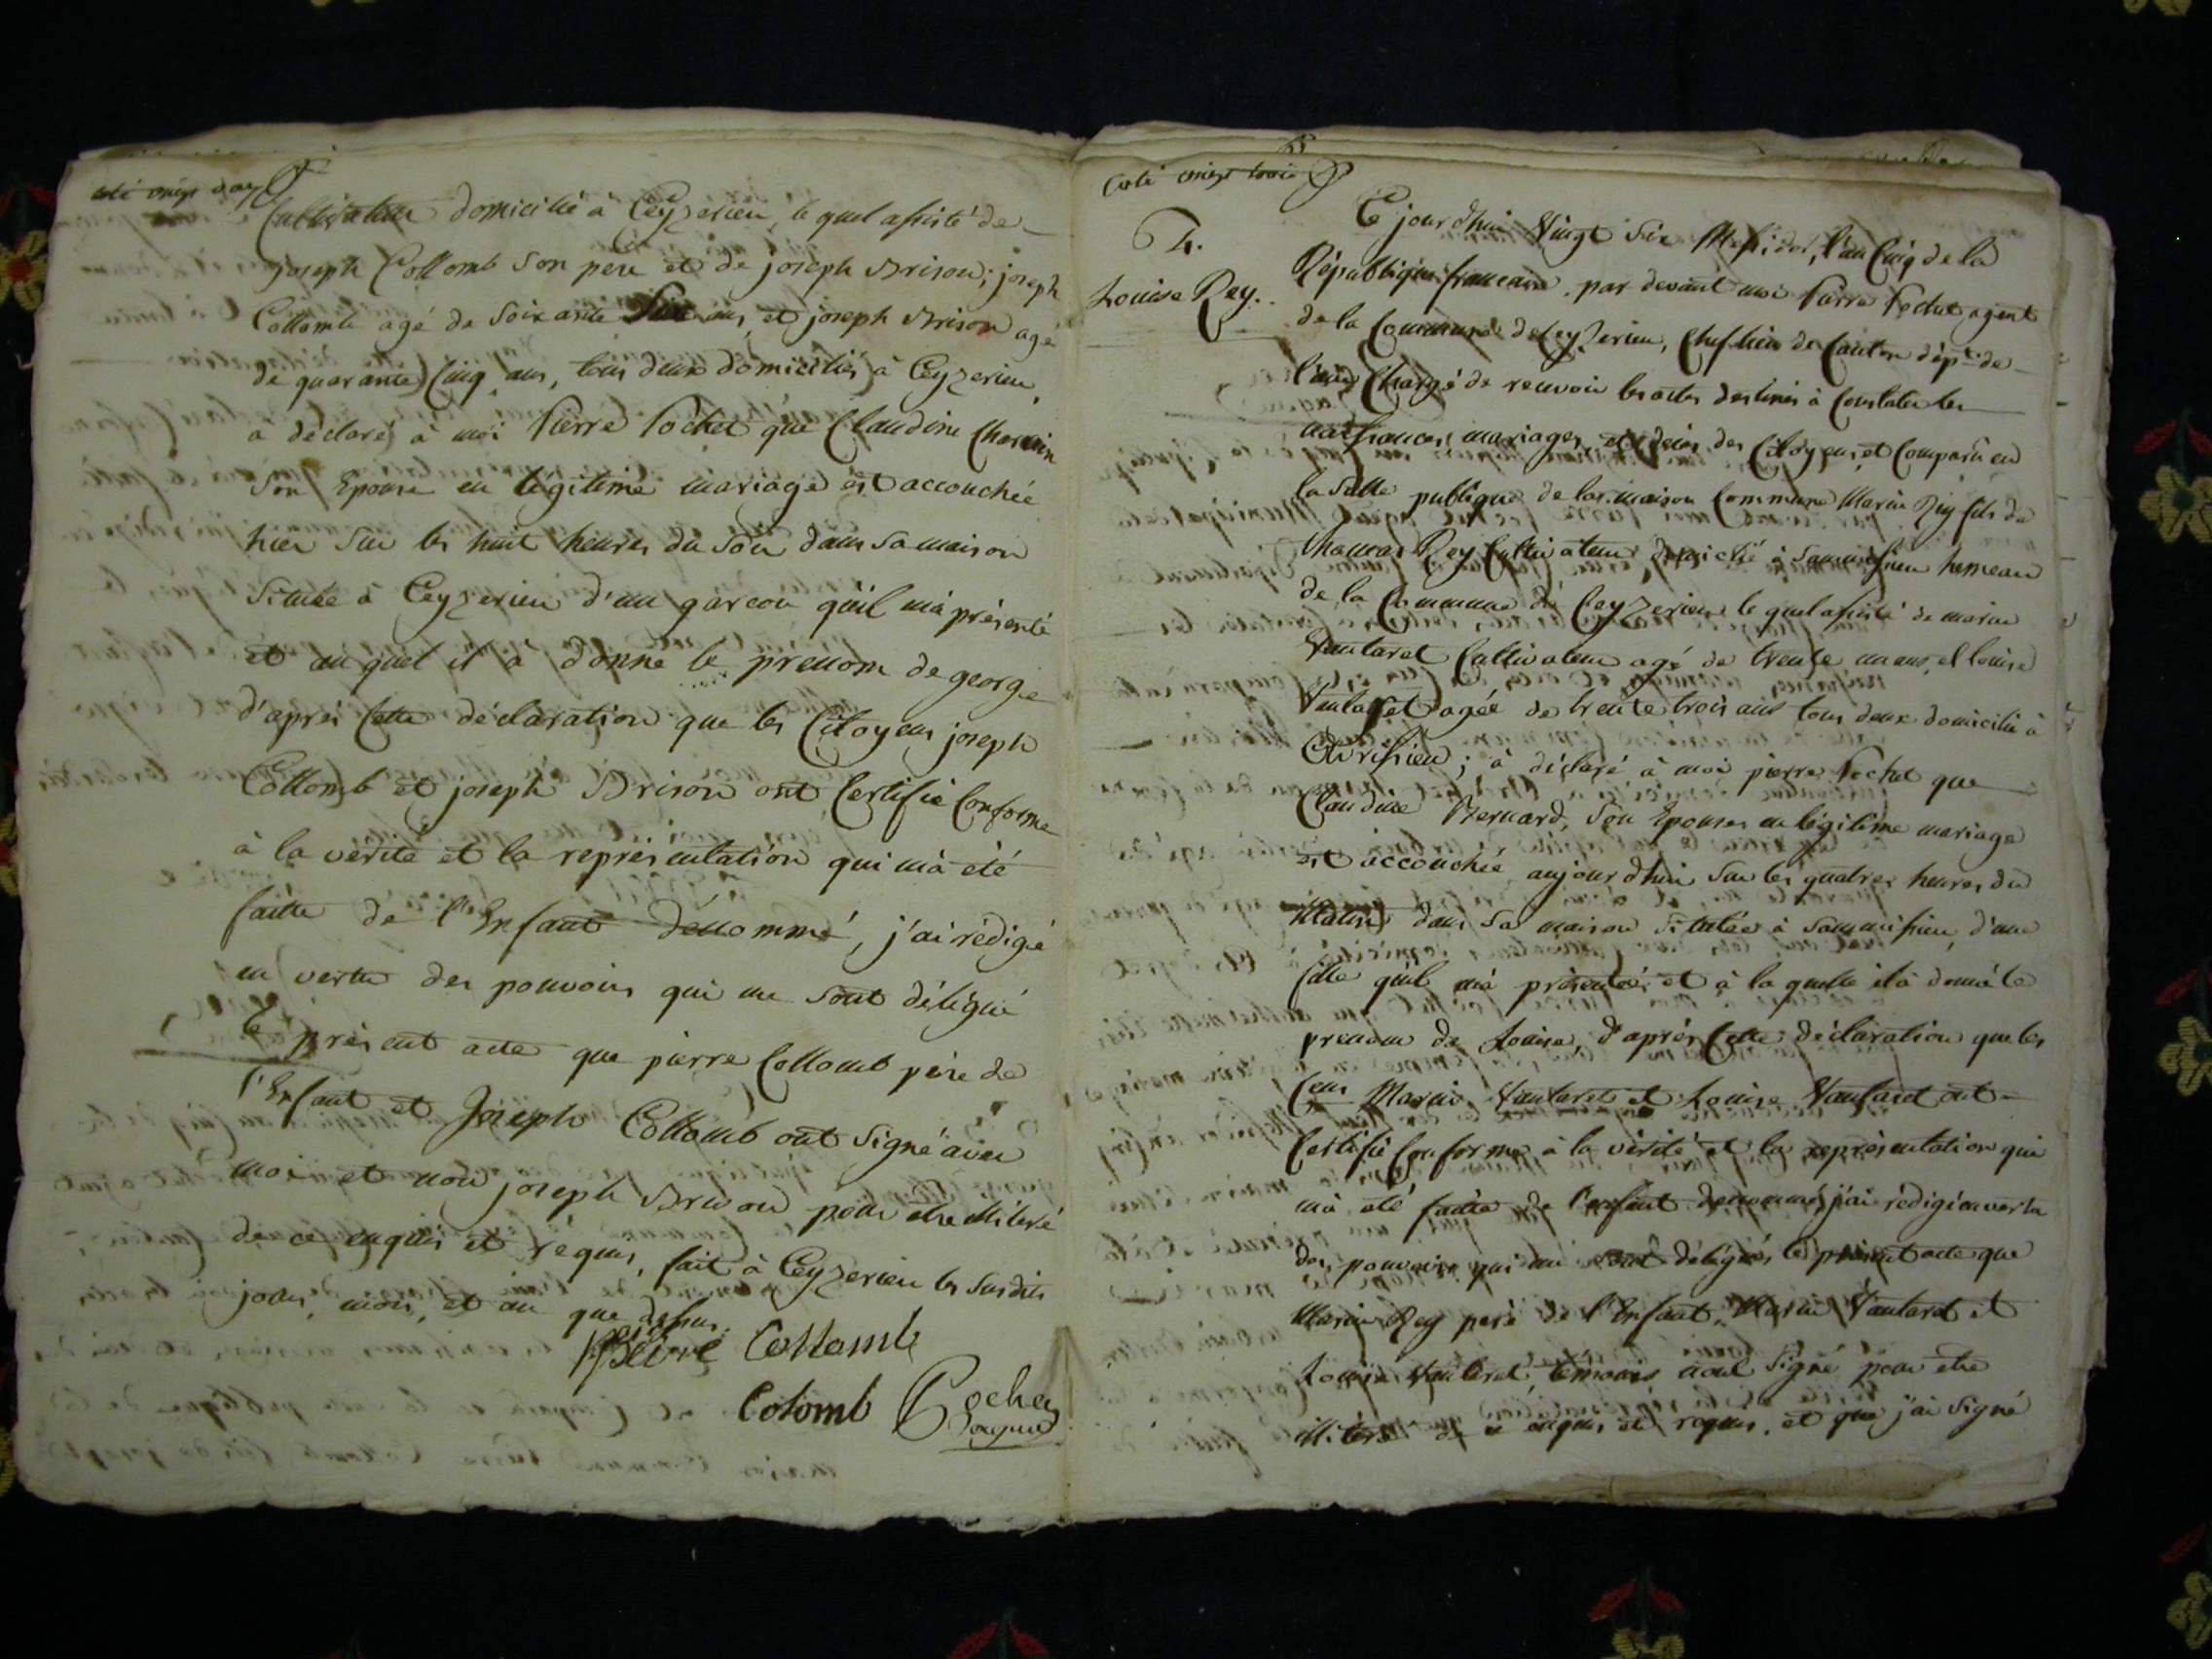 coté vingt deux
Cultivateur domicilié à Ceyzerieu, le quel assisté de
joseph Collomb son pere et de joseph Brison; joseph
Collomb agé de soixante six ans, et joseph Brison agé
de quarante Cinq ans, tous deux domiciliés à Ceyzerieu,
à déclaré à moi Pierre Pochet que Claudine
son Epouse en légitime mariage est accouchée
hier sur les huit heures du soir dans sa maison
située à Ceyzerieu d'un garcon qu'il m'à présenté
et au quel il à donné le prenom de george
d'aprés Cette déclaration que les Citoyens joseph
Collomb et joseph Brison ont Certifié Conforme
à la vérité et la représentation qui m'à eté
faitte de l'Enfant dénommé, j'ai rédigé
en vertu des pouvoirs qui me sont délégué
le présent acte que pierre Collomb pére de
l'Enfant et Joseph Collomb ont signé avec
moi et non joseph Brison pour etre illiteré
de ce enquis et réquis, fait à Ceyzerieu les susdits
jour, mois, et an que dessus.
pierre Collomb
Colomb Pochet
agent
Coté vingt trois
Louise Rey.
Ce jourd'hui vingt six Messidor, l'an Cinq de la
République francaise, par devant moi Pierre Pochet agent
de la Commune de Ceyzerieu, Chef lieu de Canton dépt. de
l'ain Chargé de recevoir les actes destinés à Constater les
naissances, mariages, et décés des Citoyens, et Comparu en
la salle publique de la maison Commune Marin Rey fils de
thomas Rey Cultivateur domicilié à hemeau
de la Commune de Ceyzerieu le quel assisté de marin
Vantaret Cultivateur agé de trente un ans, et louise
Vantaret agée de trente trois ans tous deux domicilié à
; à déclaré à moi pierre Pochet que
Claudine Bernard, son Epouse en légitime mariage
est accouchée aujourd'hui sur les quatres heures du
Matin dans sa maison située à d'une
fille qu'il m'à présentée et à la quelle il à donné le
prenom de Louise, d'aprés Cette déclaration que les
Cens Marin Vantaret et Louise Vantaret ont
Certifié Conforme à la vérité et la représentation qui
m'à eté faitte de l'enfant denommé, j'ai rédigé en vertu
des pouvoirs qui me sont délégués, le présent acte que
Marin Rey pere de l'Enfant, Marin Vantaret et
Louise Vantaret, témoins n'ont signé pour etre
illiteré de ce enquis et requis, et que j'ai signé